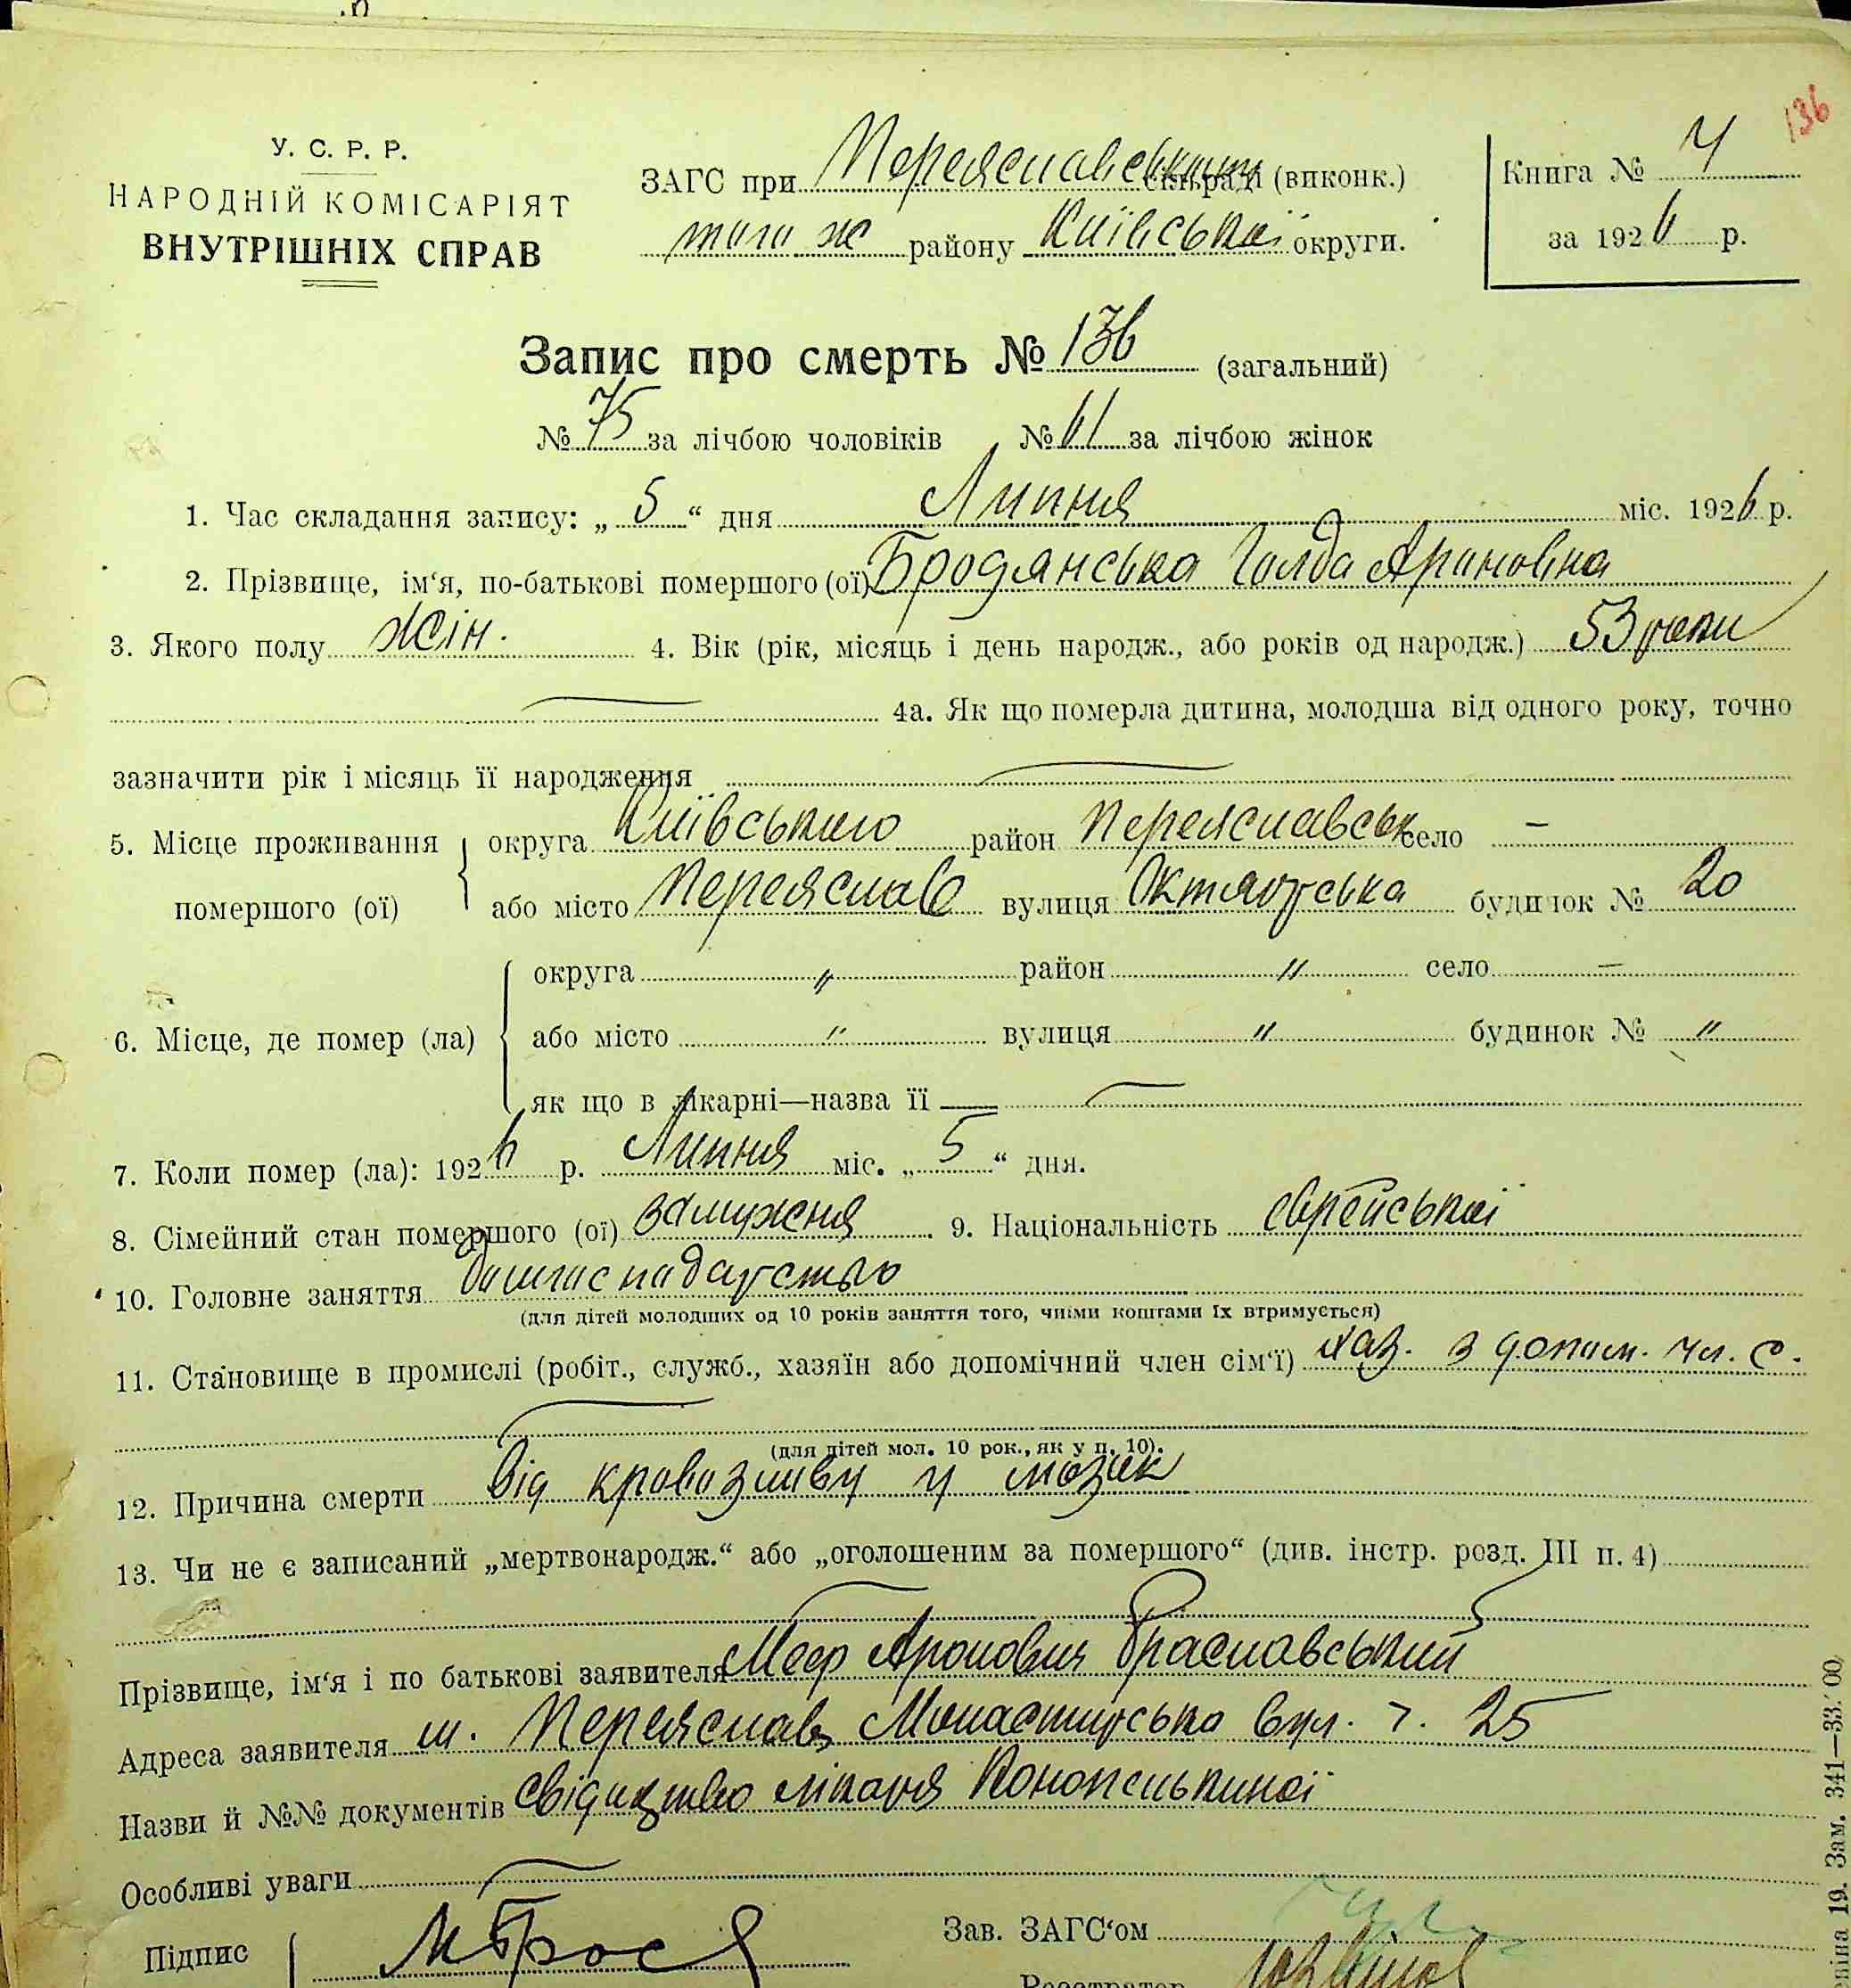 136
У. С. Р. Р.
НАРОДНІЙ КОМІСАРІЯТ
ВНУТРІШНІХ СПРАВ
ЗАГС при Переяславським сільраді (виконк.)
того ж району Київської округи.
Книга № 4
за 1926 р.
Запис про смерть № 136 (загальний)
№ 75 за лічбою чоловіків № 61 за лічбою жінок
1. Час складання запису: „ 5 “ дня Липня міс. 1926 р.
2. Прізвище, ім‘я, по-батькові помершого (ої) Бродянська Голда Ароновна
3. Якого полу жін. 4. Вік (рік, місяць і день народж., або років од народж.) 53 роки
4а. Як що померла дитина, молодша від одного року, точно
зазначити рік і місяць її народження
5. Місце проживання помершого (ої) округа Київського район Переяславськ село —
або місто Переяслав вулиця Октяюрська будинок № 20
6. Місце, де помер (ла) округа " район " село —
або місто " вулиця " будинок № "
як що в лікарні—назва її
7. Коли помер (ла): 1926 р. Липня міс. „ 5 “ дня.
8. Сімейний стан помершого (ої) замужня 9. Національність єврейської
10. Головне заняття
(для дітей молодших од 10 років заняття того, чиїми коштами їх втримується)
11. Становище в промислі (робіт., служб., хазяїн або допомічний член сім‘ї) хаз. з допом. чл. с.
(для дітей мол. 10 рок., як у п. 10).
12. Причина смерти Від кровозливу у мозок
13. Чи не є записаний „мертвонародж.“ або „оголошеним за помершого“ (див. інстр. розд. III п. 4)
Прізвище, ім‘я і по батькові заявителя Меер Аронович Браславський
Адреса заявителя м. Переяслав Монастирська вул. ч. 25
Назви й №№ документів свідоцтво лікаря Конопелькиної
Особливі уваги
Підпис М Брас
Зав. ЗАГС‘ом
Реєстратор
19. Зам. 341—33.000